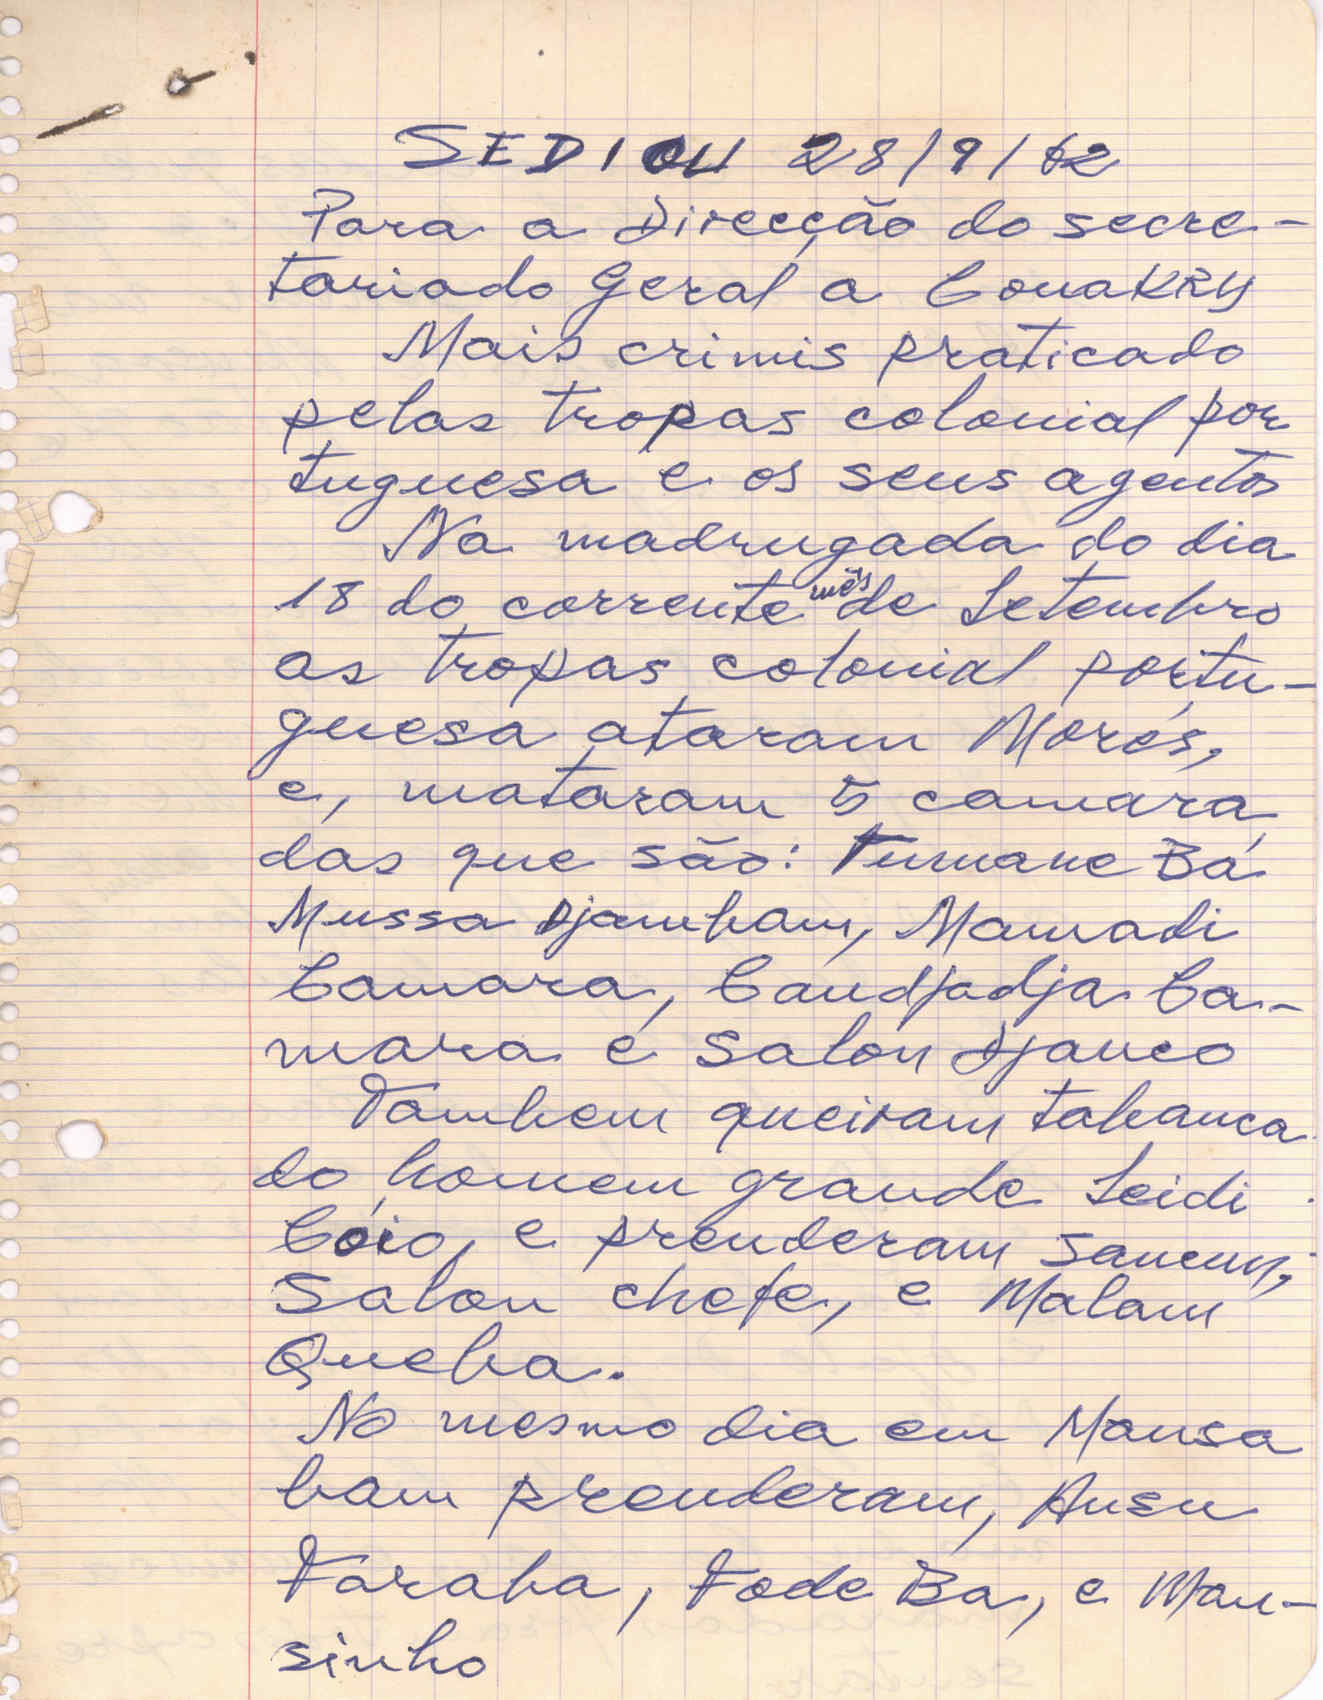 SEDIOU 28/9/62
Para a Direcção do secre-
tariado Geral a ConaKRY
Mais crimis praticado
pelas tropas colonial por
tuguesa e os seus agentos
Na madrugada do dia
18 do corrente mês de Setembro
as tropas colonial portu-
guesa ataram Morés,
e, mataram 5 camara
das que são: Tumane Bá
Mussa Djamham, Mamadi
Camara, Candjadja Ca-
mara e Salou Djanco
Tambem queiram tabanca
do homem grande Seidi
Cóio, e prenderam Sancun,
Salou chefe, e Malam
Queba.
No mesmo dia em Mansa
bam prenderam, Ansu
Faraba, Fode Ba, e Man-
sinho